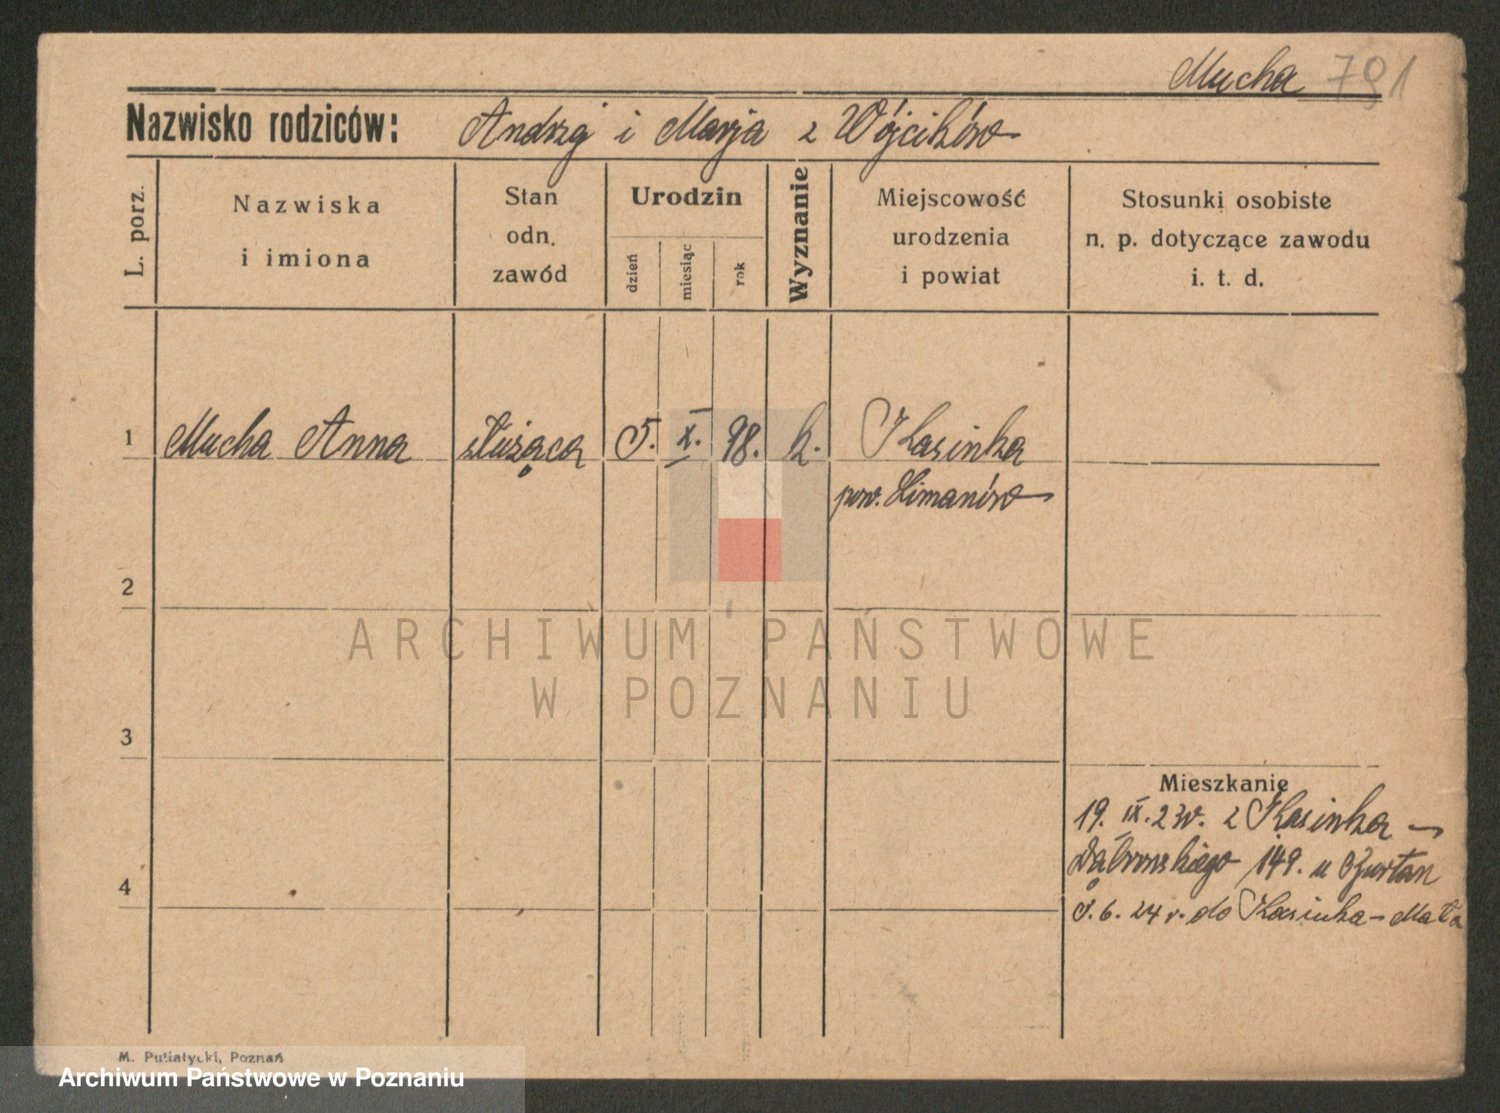 Mucha 791
Nazwisko rodziców: Andrzej i Marja z Wójcików
L. porz.
Nazwiska
i imiona
Stan
odn.
zawód
Urodzin
dzień
miesiąc
rok
Wyznanie
Miejscowość
urodzenia
i powiat
Stosunki osobiste
n. p. dotyczące zawodu
i. t. d.
1 Mucha Anna służąca 5. X. 98. k. Kasinka
pow. Limanów
2
ARCHIWUM PAŃSTWOWE
W POZNANIU
3
Mieszkanie
19. IX. 23r. z Kasinka
Dąbrowskiego 149. u
4
5. 6. 24 r. do Kasinka - Mała
M. Putiatycki, Poznań
Archiwum Państwowe w Poznaniu